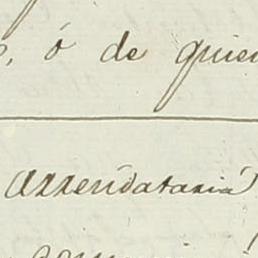 ó de quien
arrendataria